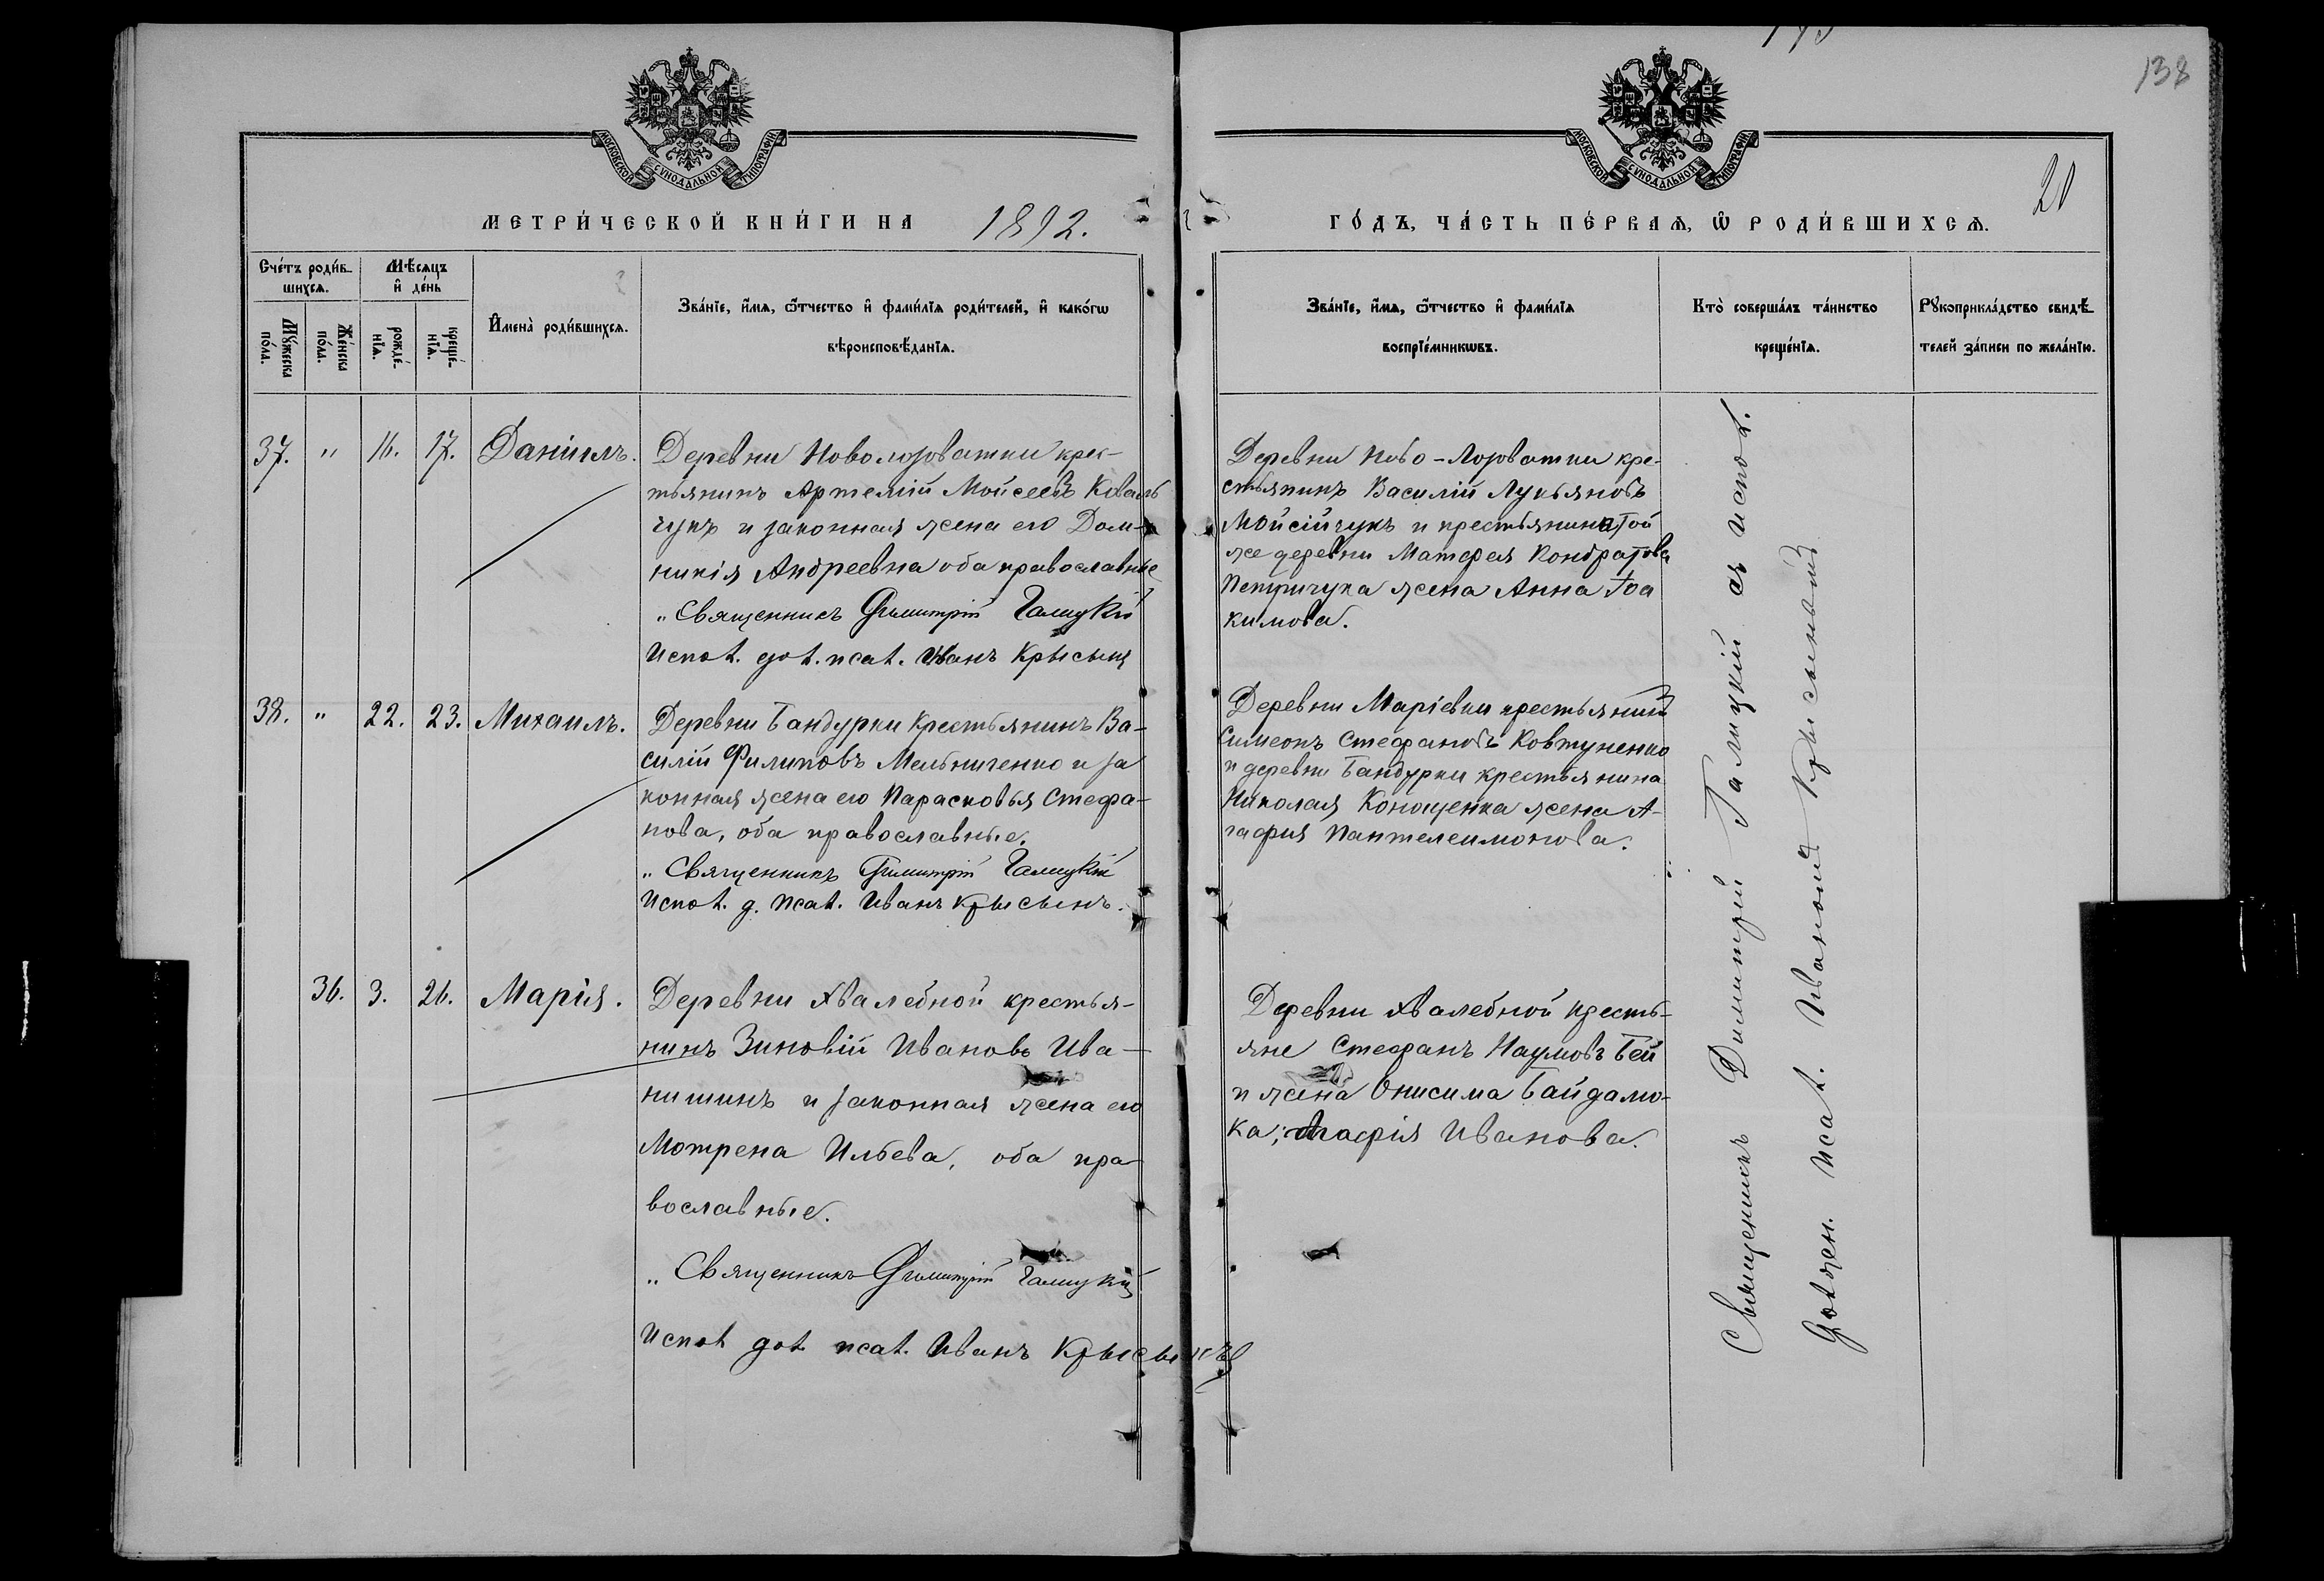 138
20
МОСКОВСКОЙ СУНОДАЛЬНОЙ ТИПОГРАФІИ
МОСКОВСКОЙ СУНОДАЛЬНОЙ ТИПОГРАФІИ
МЕТРИ́ЧЕСКОЙ КНИ́ГИ НА 1892.
ГО́ДЪ, ЧА́СТЬ ПЕ́РВАѦ, Ѿ РОДИ́ВШИХСѦ.
Сче́тъ роди́в-
шихсѧ.
Мꙋ́жеска
по́ла.
Же́нска
по́ла.
Мѣ́сѧцъ
и҆ де́нь
рожде́-
нїѧ.
креще́-
нїѧ.
И҆мена̀ роди́вшихсѧ.
Зва́нїе, и҆́мѧ, ѻ҆́тчество и҆ фами́лїѧ роди́телей, и҆ како́гѡ
вѣроисповѣ́данїѧ.
Зва́нїе, и҆́мѧ, ѻ҆́тчество и҆ фами́лїѧ
воспрїе́мникѡвъ.
Кто̀ соверша́лъ та́инство
креще́нїѧ.
Рꙋкоприкла́дство свидѣ́-
телей за́писи по жела́нїю.
37. " 16. 17. Даніилъ.
Деревни Новолозоватки крес-
тьянинъ Артемій Мойсеевъ Коваль
чукъ и законная жена его Дом-
никія Андреевна оба православные
„Священникъ Димитрій Галицкій
Испол. дол. псал. Иванъ Крысынъ
Деревни Ново-Лозоватки кре-
стьянинъ Василій Лукьяновъ
Мойсійчукъ и крестьянина той
же деревни Матфея Кондратова
Петричука жена Анна Іоа
кимова.
38. " 22. 23. Михаилъ.
Деревни Бандурки крестьянинъ Ва-
силій Филиповъ Мельниченко и за
конная жена его Парасковья Стефа-
нова, оба православные.
„Священникъ Димитрій Галицкій
Испол. д. псал. Иванъ Крысынъ.
Деревни Маріевки крестьянинъ
Симеонъ Стефановъ Ковтуненко
и деревни Бандурки крестьянина
Николая Конощенка жена А-
гафия Пантелеимонова.
36. 3. 26. Марія.
Деревни Хвалебной крестья-
нинъ Зиновій Ивановъ Ива-
нишинъ и законная жена его
Мотрена Ильева, оба пра-
вославные.
„Священникъ Димитрій Галицкій
Испол дол псал. Иванъ Крысынъ
Деревни Хвалебной кресть-
яне Стефанъ Наумовъ Бей
и жена Онисима Байдамо-
ка; Агафія Иванова.
Священникъ Димитрій Галицкій съ испол.
должн. псал. Иваномъ Крысынымъ